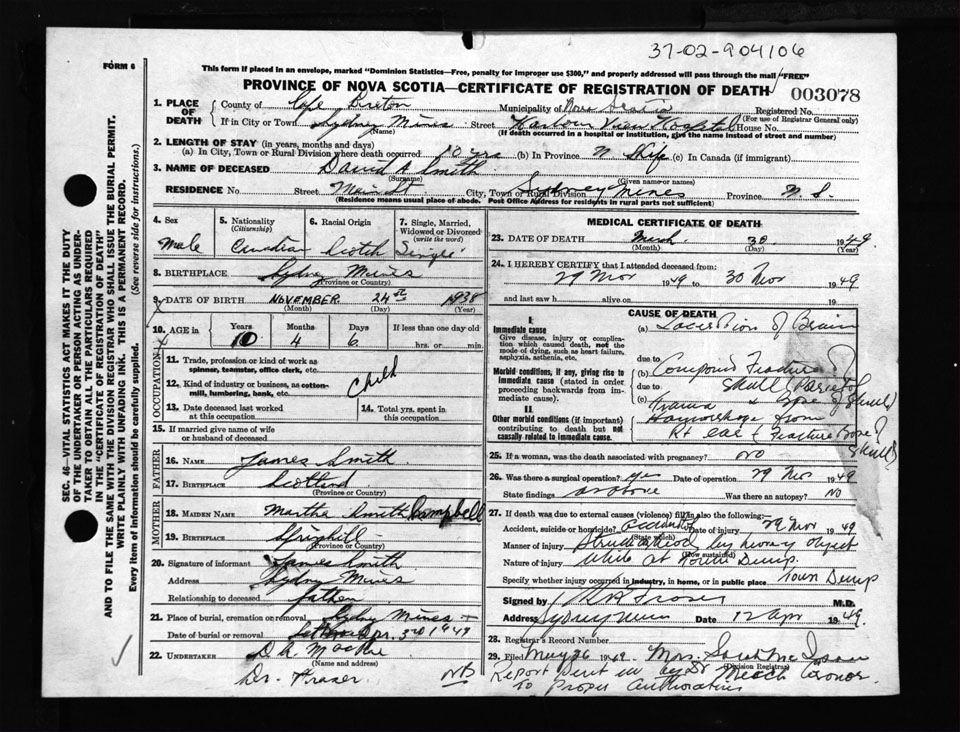 37-02-904106
FORM 6
This form if placed in an envelope, marked "Dominion Statistics—Free, penalty for improper use $300," and properly addressed will pass through the mail "FREE"
PROVINCE OF NOVA SCOTIA—CERTIFICATE OF REGISTRATION OF DEATH
003078
1. PLACE OF DEATH
County of Cape Breton Municipality of Nova Scotia Registered No.
(For use of Registrar General only)
If in City or Town Sydney Mines Street Harbour View Hospital House No.
(Name) (If death occurred in a hospital or institution, give the name instead of street and number)
2. LENGTH OF STAY (in years, months and days)
(a) In City, Town or Rural Division where death occurred 10 yrs (b) In Province (c) In Canada (if immigrant)
3. NAME OF DECEASED David A Smith
(Surname) (Given name or names)
RESIDENCE No Street Main St City, Town or Rural Division Sydney Mines Province N.S.
(Residence means usual place of abode. Post Office Address for residents in rural parts not sufficient)
SEC. 46—VITAL STATISTICS ACT MAKES IT THE DUTY
OF THE UNDERTAKER OR PERSON ACTING AS UNDER-
TAKER TO OBTAIN ALL THE PARTICULARS REQUIRED
IN THE "CERTIFICATE OF REGISTRATION OF DEATH"
AND TO FILE THE SAME WITH THE DIVISION REGISTRAR WHO SHALL ISSUE THE BURIAL PERMIT.
WRITE PLAINLY WITH UNFADING INK. THIS IS A PERMANENT RECORD.
Every item of Information should be carefully supplied. (See reverse side for instructions.)
4. Sex
Male
5. Nationality
(Citizenship)
Canadian
6. Racial Origin
Scotch
7. Single, Married,
Widowed or Divorced
(write the word)
Single
8. BIRTHPLACE Sydney Mines
(Province or Country)
9. DATE OF BIRTH NOVEMBER 24th 1938
(Month) (Day) (Year)
10. AGE in Years Months Days If less than one day old
10 4 6 hrs. or min.
OCCUPATION
11. Trade, profession or kind of work as
spinner, teamster, office clerk, etc.
12. Kind of industry or business, as cotton-
mill, lumbering, bank, etc.
Child
13. Date deceased last worked
at this occupation
14. Total yrs. spent in
this occupation
15. If married give name of wife
or husband of deceased
FATHER
16. NAME James Smith
17. BIRTHPLACE Scotland
(Province or Country)
MOTHER
18. MAIDEN NAME Martha Smith Campbell
19. BIRTHPLACE Springhill
(Province or Country)
20. Signature of informant James Smith
Address Sydney Mines
Relationship to deceased father
21. Place of burial, cremation or removal Sydney Mines
Date of burial or removal Apr. 3rd 1949
22. UNDERTAKER
(Name and address)
Dr. Fraser
MEDICAL CERTIFICATE OF DEATH
23. DATE OF DEATH March 30 1949
(Month) (Day) (Year)
24. I HEREBY CERTIFY that I attended deceased from:
29 Mar 1949 to 30 Mar 1949
and last saw h alive on 19
CAUSE OF DEATH
I.
Immediate cause
Give disease, injury or complica-
tion which caused death, not the
mode of dying, such as heart failure,
asphyxia, asthenia, etc.
(a) Laceration of Brain
due to
Morbid conditions, if any, giving rise to
immediate cause (stated in order
proceeding backwards from im-
mediate cause).
(b) Compound Fracture of
due to Skull
(c) Trauma
II.
Other morbid conditions (if important)
contributing to death but not
causally related to immediate cause.
Haemorrhage from
Rt ear & Fracture Base of
Skull
25. If a woman, was the death associated with pregnancy? no
26. Was there a surgical operation? yes Date of operation 29 Mar 1949
State findings as above Was there an autopsy? No
27. If death was due to external causes (violence) fill in also the following:
Accident, suicide or homicide? accident Date of injury 29 Mar 1949
(State which)
Manner of injury Struck by heavy object
(How sustained)
Nature of injury While at Town Dump
Specify whether injury occurred in industry, in home, or in public place Town Dump
Signed by Fraser M.D.
Address Sydney Mines Date 12 Apr 1949
28. Registrar's Record Number
29. Filed May 26 1949 Mrs. Sarah
(Division Registrar)
Report sent in by Dr
Coroner
To Proper Authorities